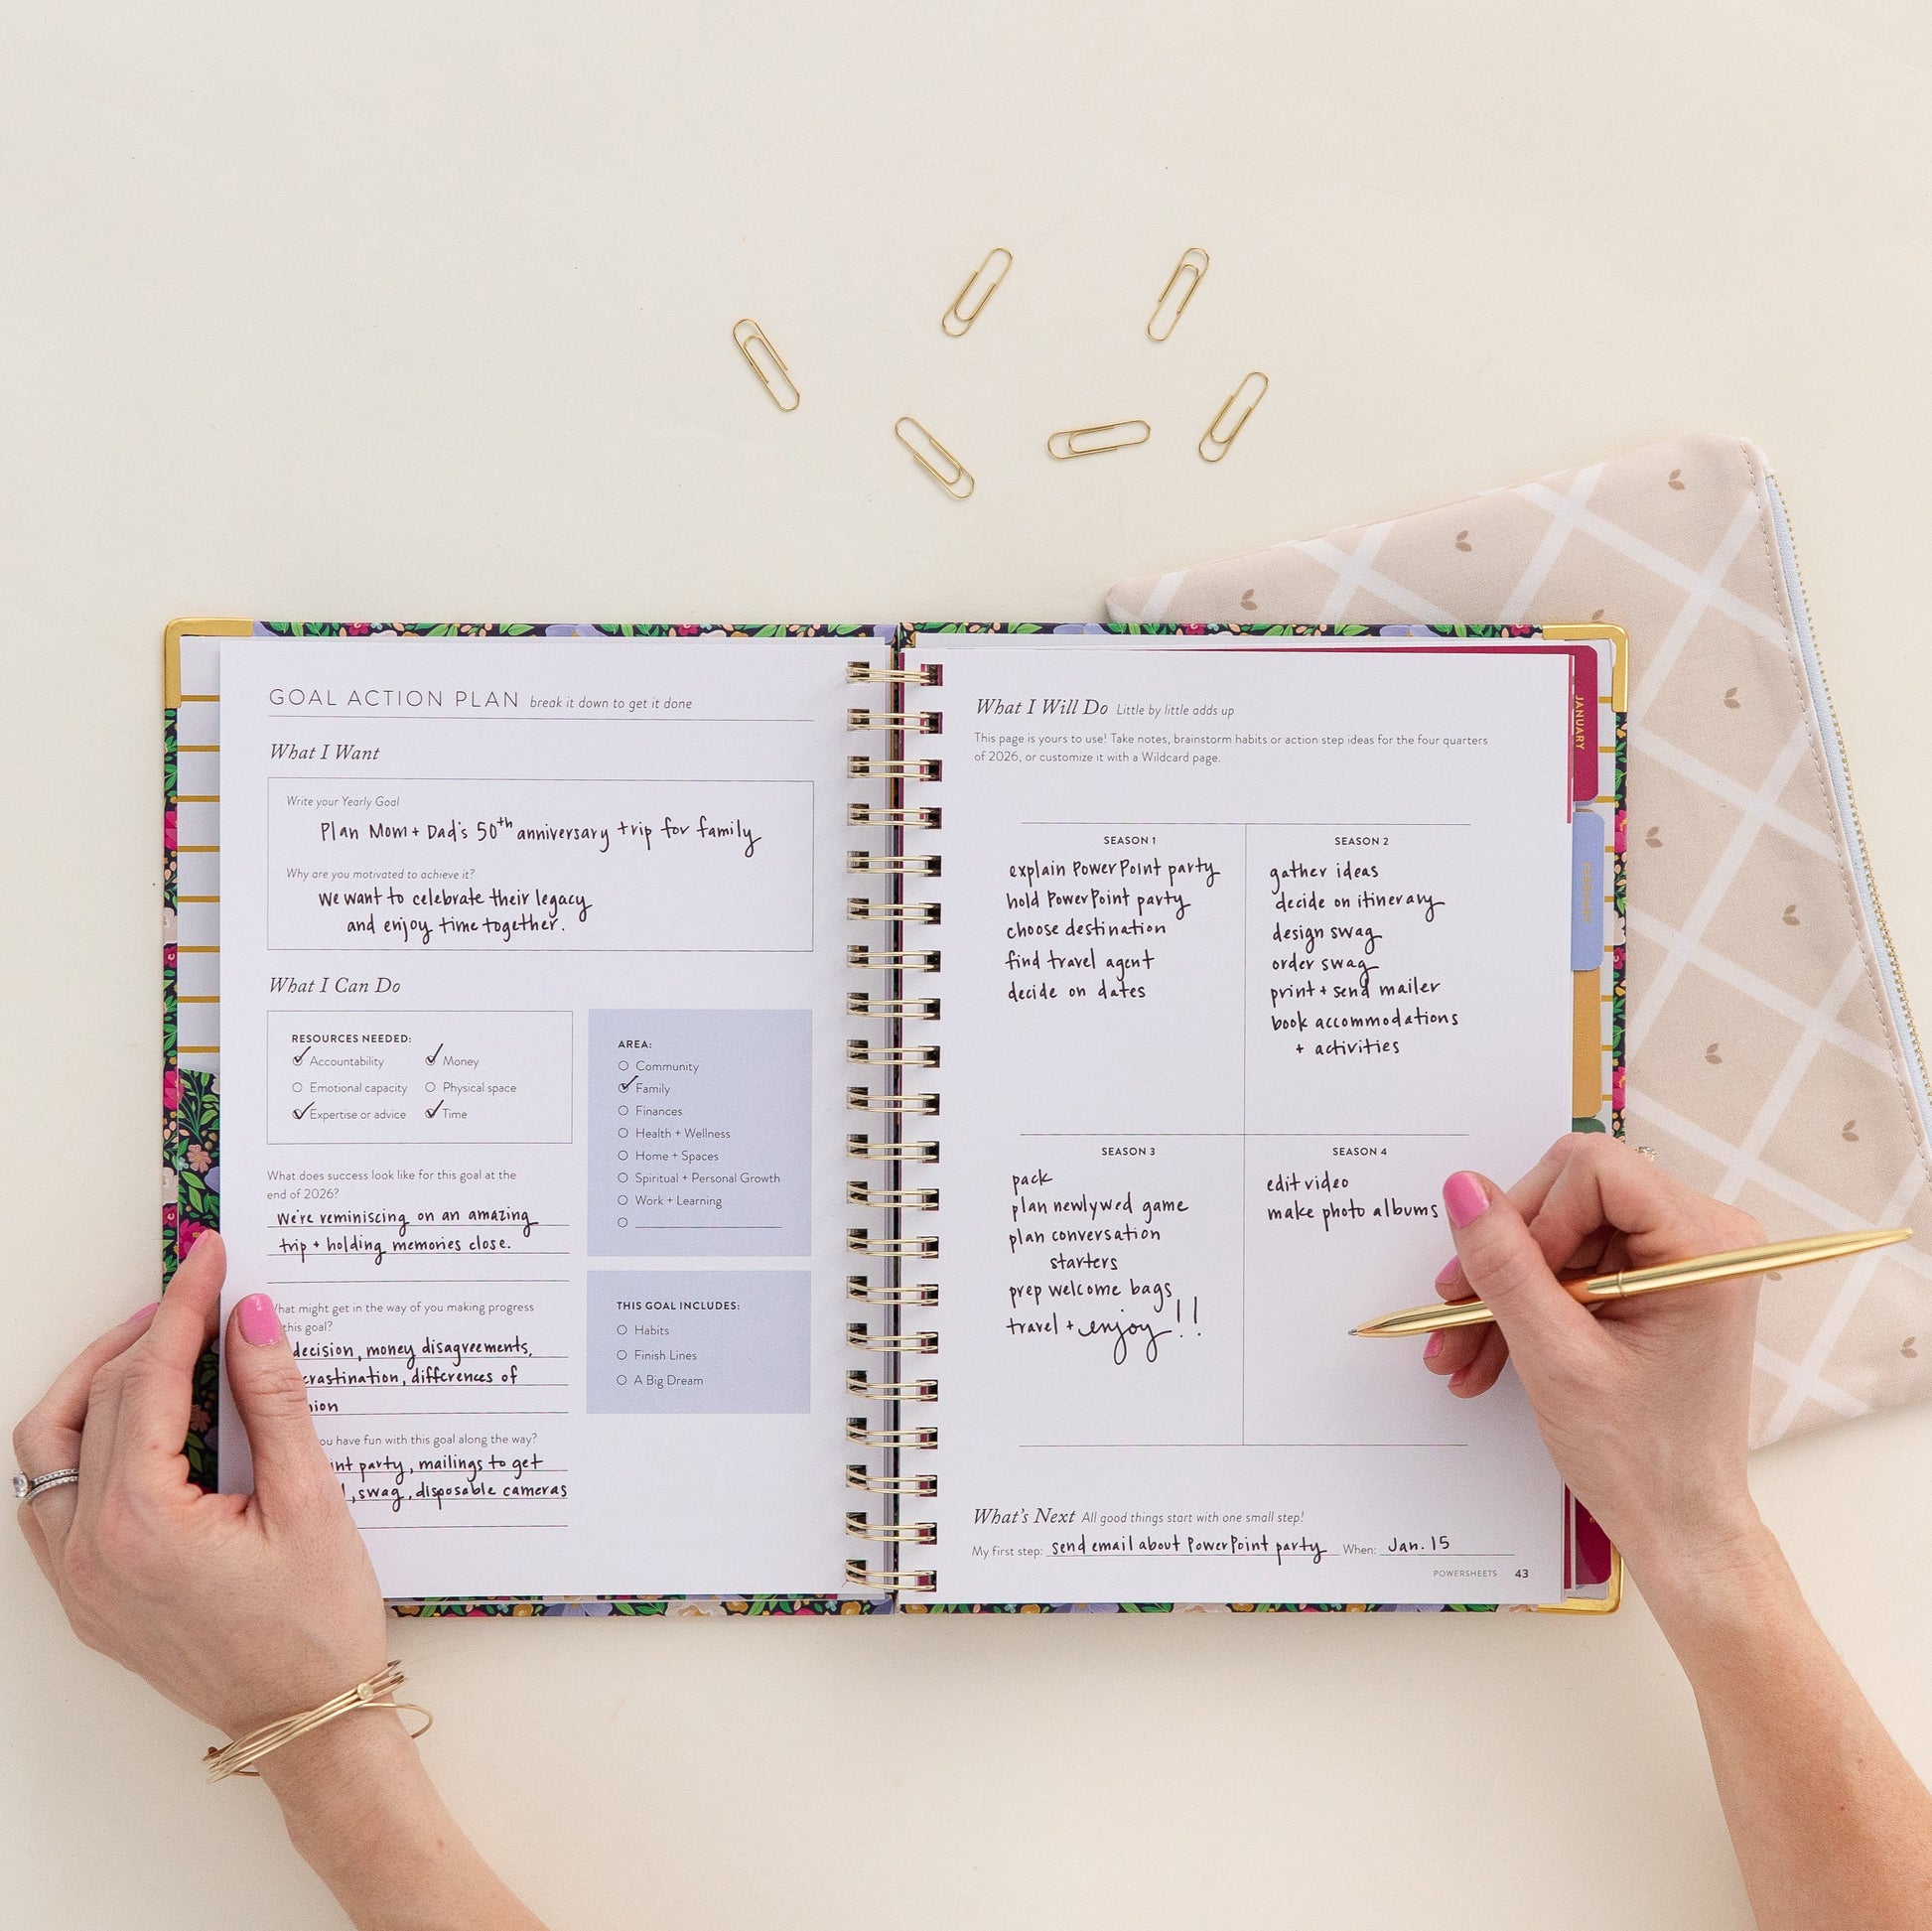 GOAL ACTION PLAN break it down to get it done
What I Want
Write your Yearly Goal
Plan Mom + Dad's 50th anniversary trip for family
Why are you motivated to achieve it?
we want to celebrate their legacy
and enjoy time together.
What I Can Do
RESOURCES NEEDED:
Accountability Money
Emotional capacity Physical space
Expertise or advice Time
AREA:
Community
Family
Finances
Health + Wellness
Home + Spaces
Spiritual + Personal Growth
Work + Learning
What does success look like for this goal at the
end of 2026?
We're reminiscing on an amazing
trip + holding memories close.
THIS GOAL INCLUDES:
Habits
Finish Lines
A Big Dream
might get in the way of you making progress
this goal?
money disagreements,
differences of
have fun with this goal along the way?
party, mailings to get
swag, disposable cameras
What I Will Do Little by little adds up
This page is yours to use! Take notes, brainstorm habits or action step ideas for the four quarters
of 2026, or customize it with a Wildcard page.
SEASON 1
explain PowerPoint party
hold PowerPoint party
choose destination
find travel agent
decide on dates
SEASON 2
gather ideas
decide on itinerary
design swag
order swag
print + send mailer
book accommodations
+ activities
SEASON 3
pack
plan newlywed game
plan conversation
starters
prep welcome bags
travel + enjoy!!
SEASON 4
edit video
make photo albums
What's Next All good things start with one small step!
My first step: send email about PowerPoint party When: Jan. 15
POWERSHEETS 43
JANUARY